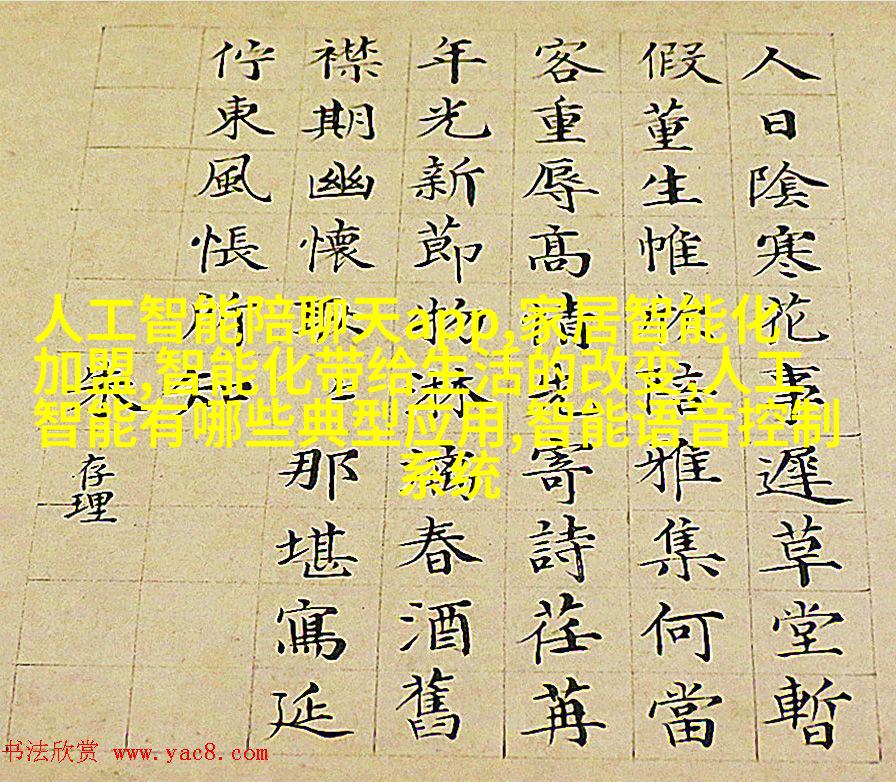 人日陰寒花事遲草堂暫
假董生帷陪雅集何當
客重辱高情寄詩荏苒
年光新節物淋漓春酒舊
襟期幽懷那堪寫延
佇東風悵所知
朱存理
人工智能陪聊天app,家居智能化
加盟,智能化带给生活的改变,人工
智能有哪些典型应用,智能语音控制
系统
书法欣赏 www.yac8.com